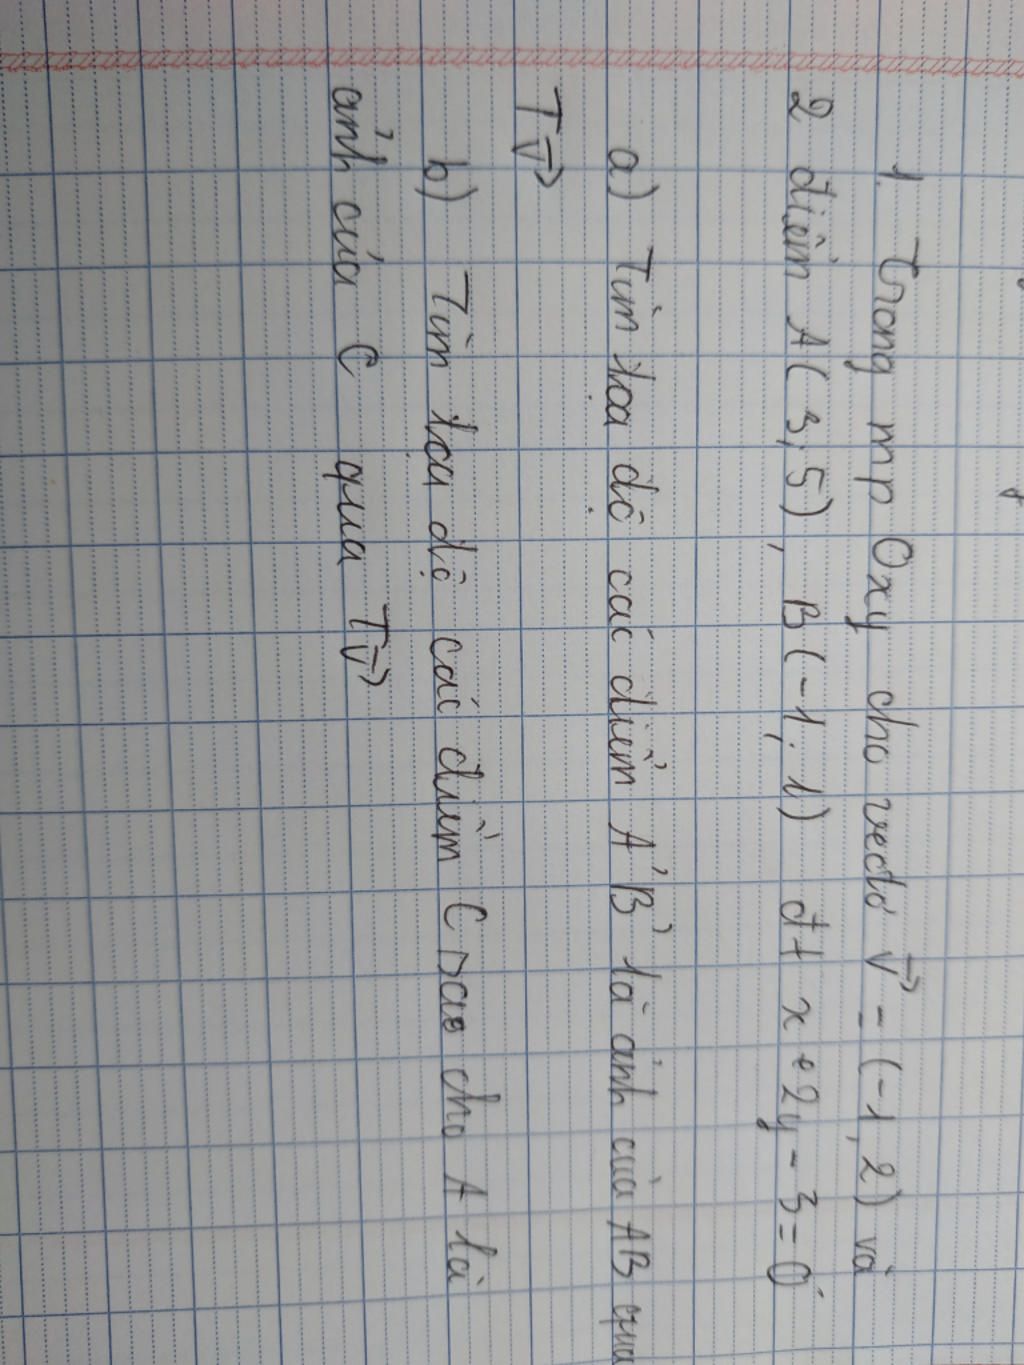 1. Trong mp Oxy cho vectơ v⃗ = (-1, 2) và
2 điểm A(3,5), B(-1;1) đt x+2y-3=0
a) Tìm tọa độ các điểm A'B' là ảnh của AB qua
Tv⃗
b) Tìm tọa độ các điểm C sao cho A là
ảnh của C qua Tv⃗